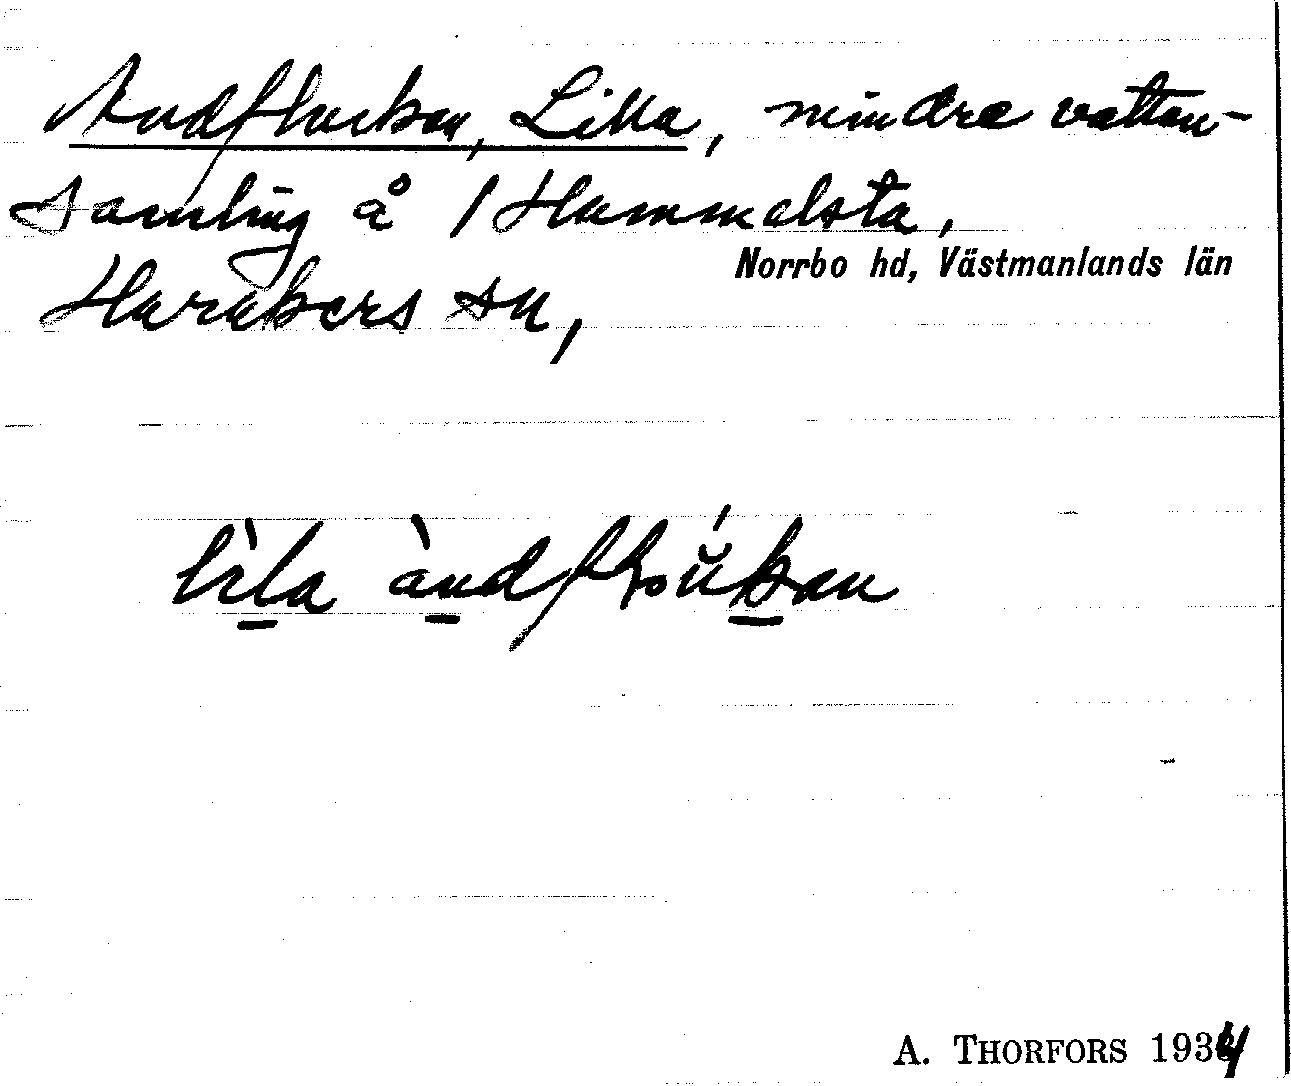 Andfluckan, Lilla, mindre vatten-
samling å 1 Hammelsta,
Norrbo hd, Västmanlands län
Harakers sn,
lìla àndf
A. THORFORS 1934